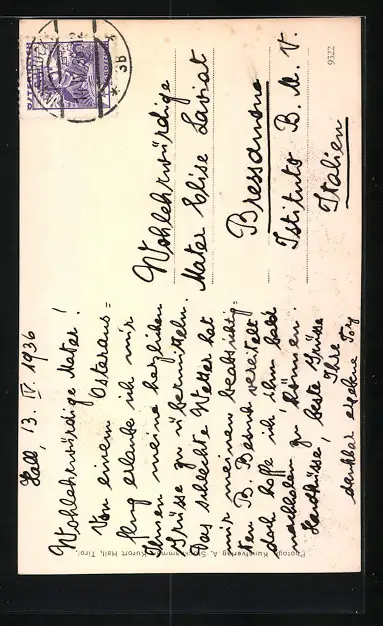 Hall, 13. IV. 1936
Wohlehrwürdige Mater!
Von einem Osteraus=
flug erlaube ich mir
Ihnen meine herzlichen
Grüsse zu übermitteln.
Das schlechte Wetter hat
mir meinen beabsichtig=
ten B. Besuch vereitelt,
doch hoffe ich ihn bald
nachholen zu können.
Handküsse, beste Grüsse
Ihre
dankbar ergebene
Wohlehrwürdige
Mater Elise Laviat
Bressanone
Istituto B. M. V.
Italien
9322
Photogr. Kunstverlag A. Stockhammer, Kurort Hall, Tirol.